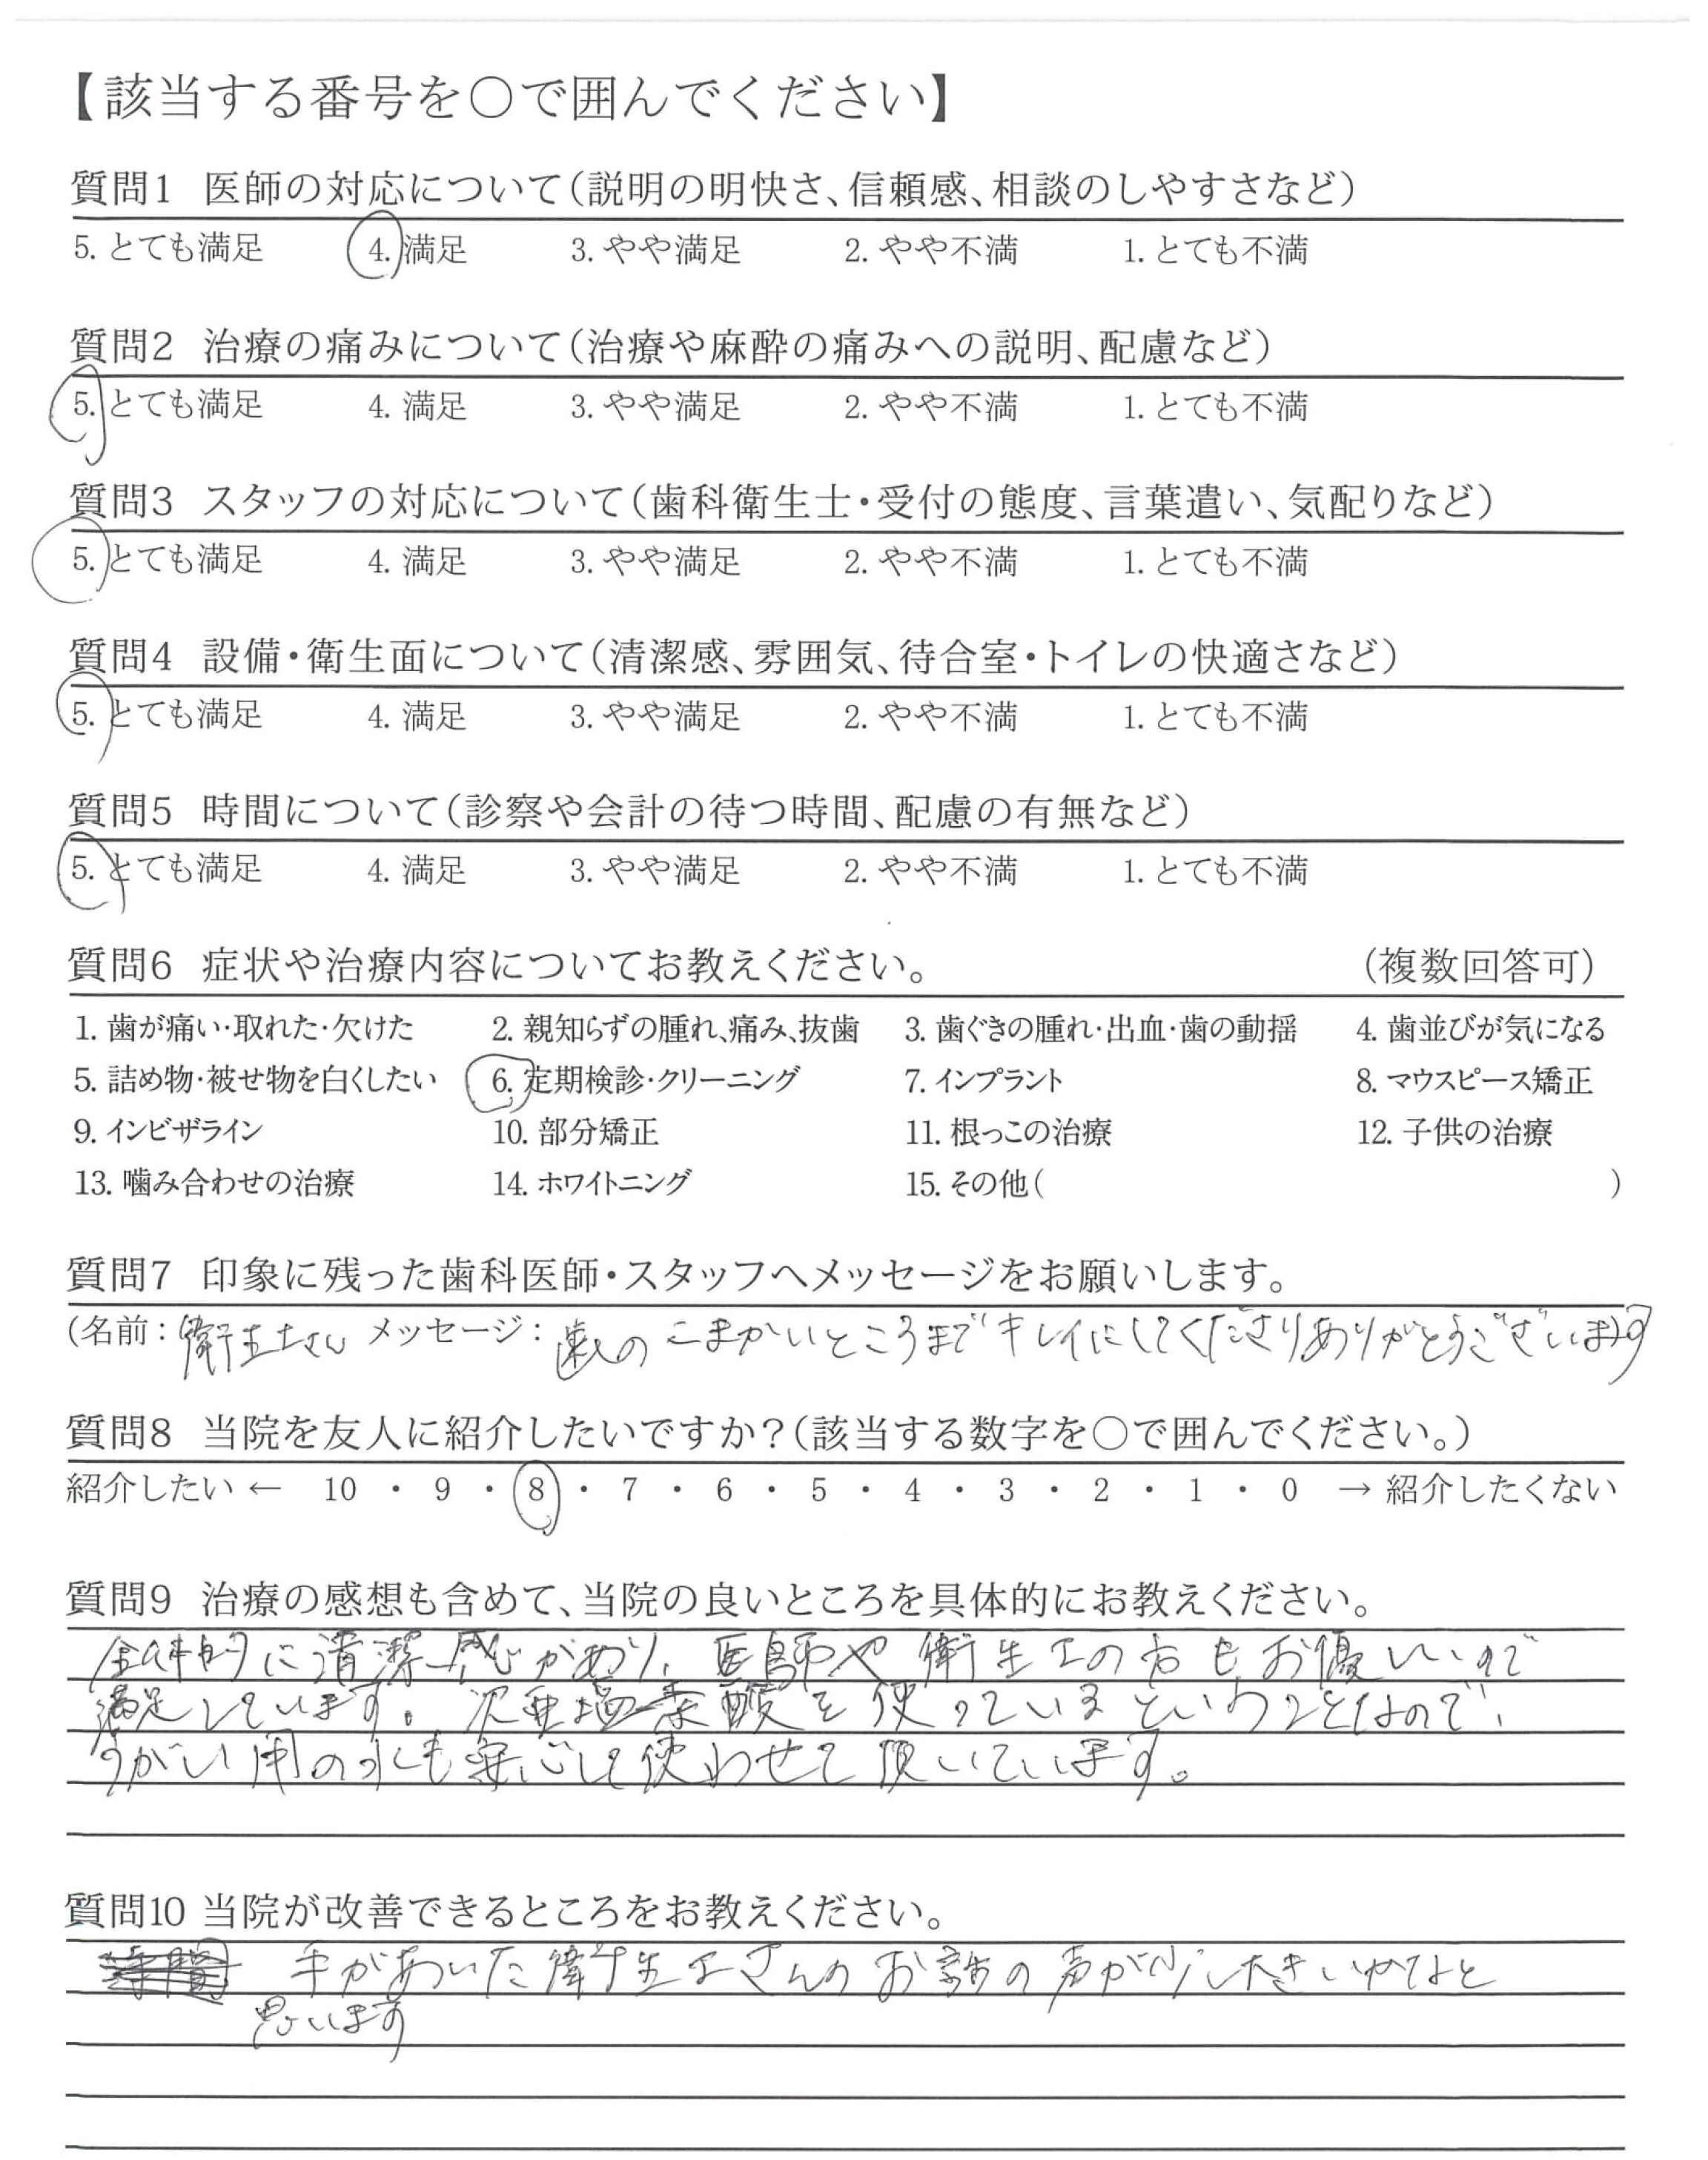 【該当する番号を○で囲んでください】
質問1 医師の対応について(説明の明快さ、信頼感、相談のしやすさなど)
5. とても満足 4. 満足 3. やや満足 2. やや不満 1. とても不満
質問2 治療の痛みについて(治療や麻酔の痛みへの説明、配慮など)
5. とても満足 4. 満足 3. やや満足 2. やや不満 1. とても不満
質問3 スタッフの対応について(歯科衛生士・受付の態度、言葉遣い、気配りなど)
5. とても満足 4. 満足 3. やや満足 2. やや不満 1. とても不満
質問4 設備・衛生面について(清潔感、雰囲気、待合室・トイレの快適さなど)
5. とても満足 4. 満足 3. やや満足 2. やや不満 1. とても不満
質問5 時間について(診察や会計の待つ時間、配慮の有無など)
5. とても満足 4. 満足 3. やや満足 2. やや不満 1. とても不満
質問6 症状や治療内容についてお教えください。 (複数回答可)
1. 歯が痛い・取れた・欠けた 2. 親知らずの腫れ、痛み、抜歯 3. 歯ぐきの腫れ・出血・歯の動揺 4. 歯並びが気になる
5. 詰め物・被せ物を白くしたい 6. 定期検診・クリーニング 7. インプラント 8. マウスピース矯正
9. インビザライン 10. 部分矯正 11. 根っこの治療 12. 子供の治療
13. 噛み合わせの治療 14. ホワイトニング 15. その他( )
質問7 印象に残った歯科医師・スタッフへメッセージをお願いします。
(名前：衛生士さん メッセージ：歯のこまかいところまでキレイにしてくださりありがとうございます)
質問8 当院を友人に紹介したいですか？(該当する数字を○で囲んでください。)
紹介したい ← 10 ・ 9 ・ 8 ・ 7 ・ 6 ・ 5 ・ 4 ・ 3 ・ 2 ・ 1 ・ 0 → 紹介したくない
質問9 治療の感想も含めて、当院の良いところを具体的にお教えください。
全体的に清潔感があり、医師や衛生士の方もお優しいので
満足しています。次亜塩素酸を使っているということなので、
うがい用の水も安心して使わせて頂いています。
質問10 当院が改善できるところをお教えください。
手があいた衛生士さんのお話の声が少し大きいかなと
思います